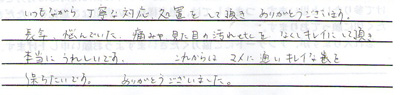 いつもながら 丁寧な対応、処置をして頂き ありがとうございます。
長年、悩んでいた、痛みや見た目の汚れetcをなくしキレイにして頂き
本当にうれしいです。 これからは マメに通いキレイな歯を
保ちたいです。 ありがとうございました。